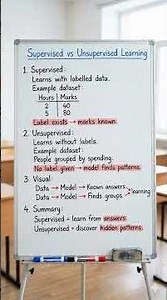 Supervised vs Unsupervised Learning
1. Supervised:
Learns with labelled data.
Example dataset:
Hours | Marks
2 | 40
5 | 80
Label exists → marks known.
2. Unsupervised:
Learns without labels.
Example dataset:
People grouped by spending.
No label given → model finds patterns.
3. Visual:
Data → Model → Known answers
Data → Model → Finds groups
learning
4. Summary:
Supervised = learn from answers.
Unsupervised = discover hidden patterns.